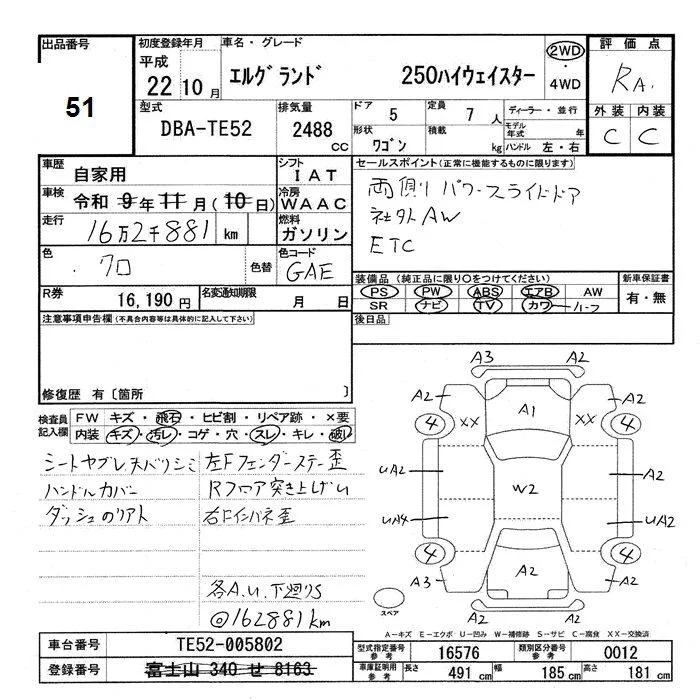 出品番号
51
初度登録年月
平成
22 10 月
車名・グレード
エルグランド 250ハイウェイスター
2WD
・
4WD
評価点
RA.
外装 内装
C C
型式
DBA-TE52
排気量
2488 cc
ドア 5
定員 7 人
ディーラー・並行
モデル年式 年
形状 ワゴン
積載 kg
ハンドル 左・右
車歴 自家用
シフト IAT
車検 令和 9年 11月(10日)
冷房 WAAC
走行 16万2千881 km
燃料 ガソリン
色 クロ 色替
色コード GAE
R券 16,190円
名変通知期限 月 日
セールスポイント(正常に機能するものに限ります)
両側パワースライドドア
社外AW
ETC
装備品 (純正品に限り○をつけてください)
PS PW ABS エアB AW
SR ナビ TV カワ ハーフ
新車保証書
有・無
後日品
注意事項申告欄(不具合内容等は具体的に記入して下さい)
修復歴 有〔箇所 〕
検査員記入欄
FW キズ・飛石・ヒビ割・リペア跡・×要
内装 キズ・汚レ・コゲ・穴・スレ・キレ・破レ
シートヤブレ 天バリシミ
ハンドルカバー
ダッシュのリアト
左Fフェンダーステー歪
Rフロア突き上げ
右Fインパネ歪
各A.U.下廻りS
@162881km
A3 A2
A2 A1 A2
XX XX
4 4
UA2 A2
W2
UA4 UA2
4 4
A3 A2 A2
A2 A2
スペア
A-キズ E-エクボ U-凹み W-補修跡 S-サビ C-腐食 XX-交換済
車台番号 TE52-005802
登録番号 富士山 340 せ 8163
型式指定番号 参考 16576
類別区分番号 参考 0012
車庫証明用 参考 長さ 491 cm 幅 185 cm 高さ 181 cm